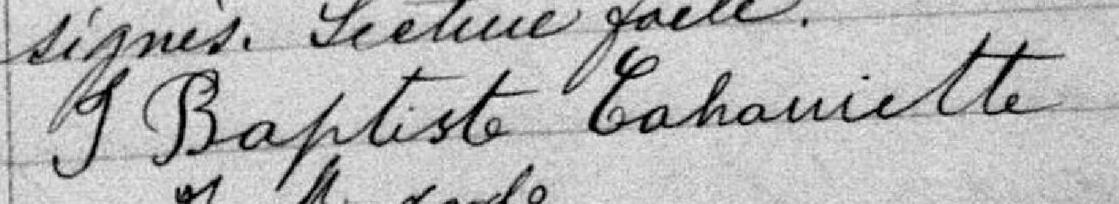 signés. Lecture faite.
J Baptiste Cahouiette